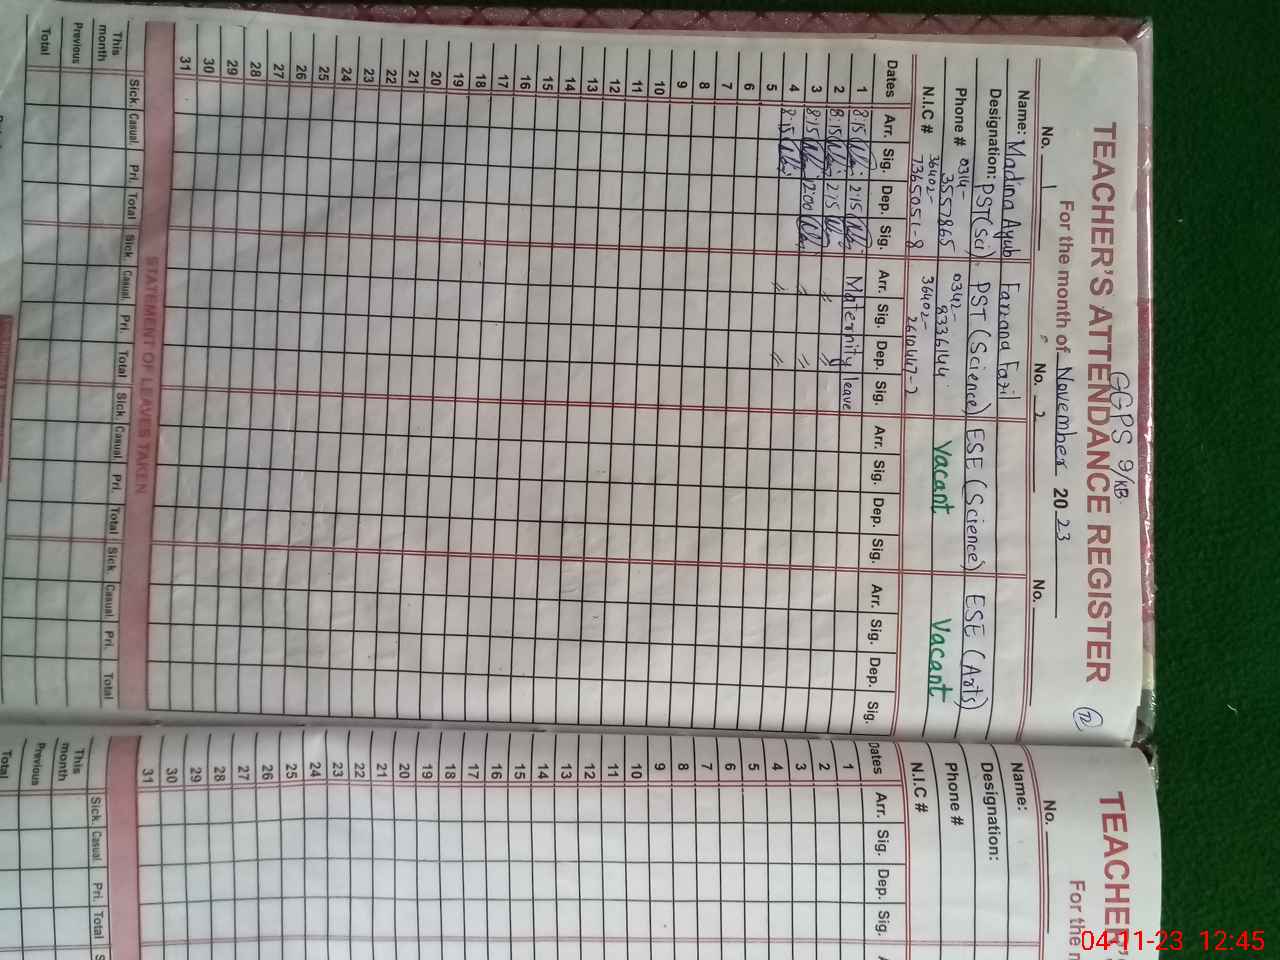 GGPS 9/KB.
TEACHER'S ATTENDANCE REGISTER
72
For the month of November 2023
No. 1 No. 2 No.
Name: Madina Ayub Farzana Fazil
Designation: PST(Sci). PST (Science) ESE (Science) ESE (Arts)
Phone # 0314- 3557865 0342- 9336144
N.I.C # 36402- 7365051-8 36402- 2610447-2 Vacant Vacant
Dates Arr. Sig. Dep. Sig. Arr. Sig. Dep. Sig. Arr. Sig. Dep. Sig. Arr. Sig. Dep. Sig.
1 8:15 2:15 Maternity leave
2 8:15 2:15 〃 〃
3 8:15 12:00 〃 〃
4 8:15 〃 〃
5
6
7
8
9
10
11
12
13
14
15
16
17
18
19
20
21
22
23
24
25
26
27
28
29
30
31
STATEMENT OF LEAVES TAKEN
Sick. Casual. Pri. Total Sick. Casual. Pri. Total Sick. Casual. Pri. Total Sick. Casual. Pri. Total
This month
Previous
Total
TEACHER'S
For the
No.
Name:
Designation:
Phone #
N.I.C #
Dates Arr. Sig. Dep. Sig.
1
2
3
4
5
6
7
8
9
10
11
12
13
14
15
16
17
18
19
20
21
22
23
24
25
26
27
28
29
30
31
Sick. Casual. Pri. Total
This month
Previous
Total
04-11-23 12:45